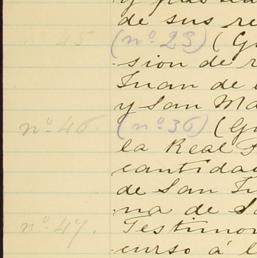 de sus re
(nº 23) (Gu
sion de r
Juan de
y San Ma
nº 46. (nº 36) (Gu
la Real
cantidad
de San Ju
na de S
nº 47. Testimon
curso á l